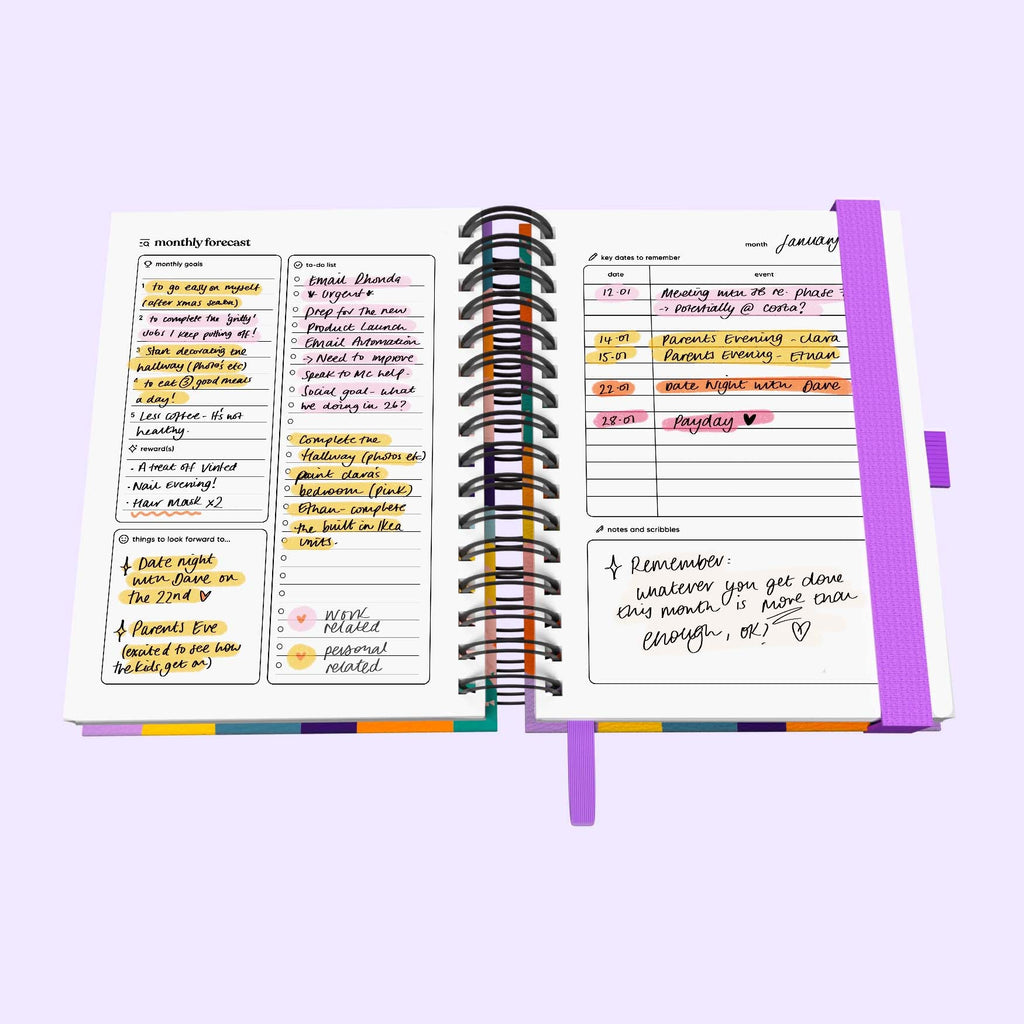 monthly forecast
monthly goals
1 to go easy on myself
(after xmas season)
2 to complete the 'gritty'
jobs I keep putting off!
3 Start decorating the
hallway (photos etc)
4 to eat 3 good meals
a day!
5 Less coffee - It's not
healthy.
reward(s)
- A treat off Vinted
- Nail Evening!
- Hair Mask x2
things to look forward to...
Date night
with Dave on
the 22nd
Parents Eve
(excited to see how
the kids get on)
to-do list
Email Rhonda
* Urgent *
Prep for the new
Product Launch
Email Automation
-> Need to improve
speak to Mc help -
Social goal - what
we doing in 26?
Complete the
Hallway (photos etc)
paint clara's
bedroom (pink)
Ethan - complete
the built in Ikea
units.
work
related
personal
related
month January
key dates to remember
date event
12.01 Meeting with JB re. phase
-> Potentially @ costa?
14.01 Parents Evening - clara
15.01 Parents Evening - Ethan
22.01 Date Night with Dave
28.01 Payday
notes and scribbles
Remember:
whatever you get done
this month is more than
enough, OK?